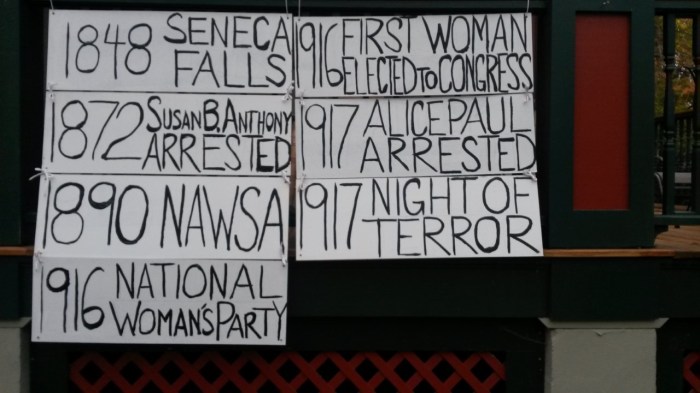 1848 SENECA
FALLS
1872 SUSAN B. ANTHONY
ARRESTED
1890 NAWSA
1916 NATIONAL
WOMAN'S PARTY
1916 FIRST WOMAN
ELECTED to CONGRESS
1917 ALICE PAUL
ARRESTED
1917 NIGHT OF
TERROR